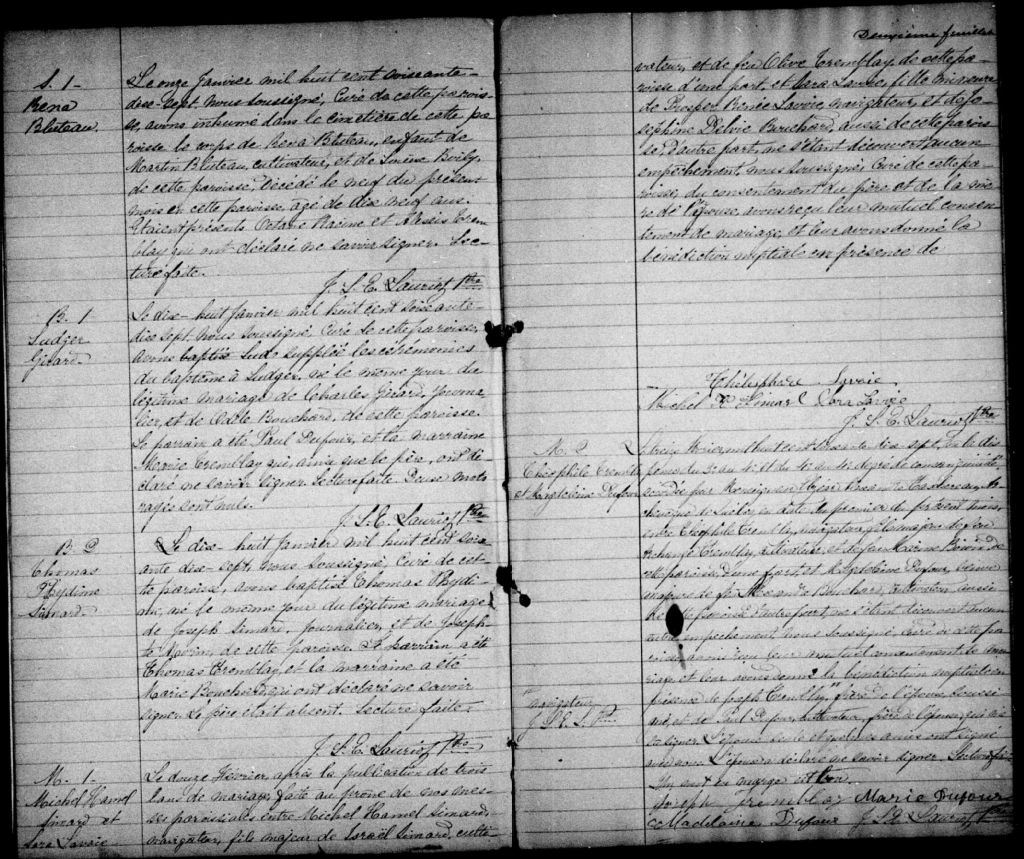 S. 1
Rena
Bluteau.
Le onze Janvier mil huit cent soixante-
dix-sept nous soussigné, Curé de cette parois-
se, avons inhumé dans le cimetière de cette pa-
roisse le corps de Rena Bluteau, enfant de
Martin Bluteau, cultivateur, et de Boily,
de cette paroisse, décédé le neuf du présent
mois en cette paroisse, agé de dix neuf ans.
Etaient présents Octave Racine et Alexis Trem-
blay qui ont déclaré ne savoir signer. Lec-
ture faite.
J. S. E. Lauriot Ptre
B. 1
Ludger
Girard.
Le dix-huit Janvier mil huit cent soixante-
dix sept, nous soussigné, Curé de cette paroisse,
avons baptisé suppléé les cérémonies
du baptême à Ludger né le même jour du
légitime mariage de Charles Girard, journa-
lier, et de Bouchard, de cette paroisse.
Le parrain a été Paul Dufour, et la marraine
Marie Tremblay qui, ainsi que le père, ont dé-
claré ne savoir signer. Lecture faite. Deux mots
rayés sont nuls.
J. S. E. Lauriot Ptre
B. 2
Thomas
Phydime
Simard.
Le dix-huit Janvier mil huit cent soix-
ante dix-sept, nous soussigné, Curé de cet-
te paroisse, avons baptisé Thomas Phydi-
me, né le même jour du légitime mariage
de Joseph Simard, journalier, et de Joseph-
te de cette paroisse. Le parrain a été
Thomas Tremblay, et la marraine a été
Marie Bouchard qui ont déclaré ne savoir
signer. Le père était absent. Lecture faite.
J. S. E. Lauriot Ptre
M. 1
Michel Hamel
Simard et
Lavoie
Le douze Février, après la publication de trois
bans de mariage faite au prône de nos mes-
ses paroissiales entre Michel Hamel Simard,
navigateur, fils majeur de Israël Simard, culti-
Deuxième feuillet
vateur, et de feu Olive Tremblay de cette pa-
roisse d'une part, et Cora Lavoie, fille mineure
de Prosper Lavoie, navigateur, et de Jo-
sephine Delvie Bouchard, aussi de cette parois-
se d'autre part, ne s'étant découvert aucun
empêchement, nous soussigné, Curé de cette pa-
roisse, du consentement du père et de la mè-
re de l'épouse, avons reçu leur mutuel consen-
tement de mariage, et leur avons donné la
bénédiction nuptiale en présence de
Thélesphore Lavoie
Michel H Simard Cora Lavoie
J. S. E. Lauriot Ptre
M. 2
Théophile Tremblay
et Magdeleine Dufour
mil huit cent soixante dix-sept, Vu la dis-
pense du degré de consanguinité
accordée par Monseigneur Taschereau, Ar-
chevêque de Québec, en date du premier du présent mois,
entre Théophile Tremblay, navigateur, fils majeur de feu
Tremblay, et de feu
cette paroisse, d'une part, et Magdeleine Dufour, veuve
majeure de feu Bouchard, aussi
de cette paroisse d'autre part, ne s'étant découvert aucun
autre empêchement, nous soussigné, Curé de cette pa-
roisse, avons reçu leur mutuel consentement de ma-
riage, et leur avons donné la bénédiction nuptiale en
présence de Joseph Tremblay, frère de l'époux,
et de Paul Dufour, frère de l'épouse, qui
signer. L'épouse seule et quelques amis ont signé
avec nous. L'époux a déclaré ne savoir signer. Lecture faite.
Un mot en marge est bon.
navigateur
J. S. E. L. Ptre
Joseph Tremblay Marie Dufour
Madelaine Dufour J. S. E. Lauriot Ptre